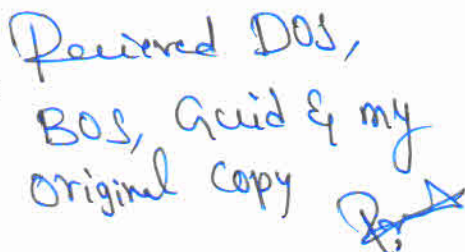 Recieved DOS,
BOS, Guid & my
original copy